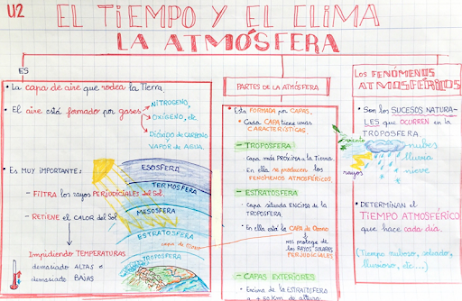 U2
EL TIEMPO Y EL CLIMA
LA ATMÓSFERA
ES
• La capa de aire que rodea la Tierra
• El aire está formado por gases
NITRÓGENO,
OXÍGENO, etc
DIÓXIDO DE CARBONO
VAPOR DE AGUA.
• Es MUY IMPORTANTE:
- FILTRA los rayos PERJUDICIALES del Sol
- RETIENE el CALOR del Sol
Impidiendo TEMPERATURAS
demasiado ALTAS o
demasiado BAJAS
EXOSFERA
TERMOSFERA
MESOSFERA
ESTRATOSFERA
TROPOSFERA
PARTES DE LA ATMÓSFERA
• Está FORMADA por CAPAS.
• Cada CAPA tiene unas
CARACTERÍSTICAS
- TROPOSFERA
Capa más PRÓXIMA a la Tierra.
En ella se producen los
FENÓMENOS ATMOSFÉRICOS.
- ESTRATOSFERA
• Capa situada ENCIMA de la
TROPOSFERA
• En ella está la CAPA de Ozono
nos protege de
los RAYOS SOLARES
PERJUDICIALES
- CAPAS EXTERIORES
• Encima de la ESTRATOSFERA
Los FENÓMENOS
ATMOSFÉRICOS
• Son los SUCESOS NATURA-
LES que OCURREN en la
TROPOSFERA.
viento
rayos
nubes
lluvia
nieve
• DETERMINAN el
TIEMPO ATMOSFÉRICO
que hace cada día.
(Tiempo nuboso, soleado,
lluvioso, etc...)